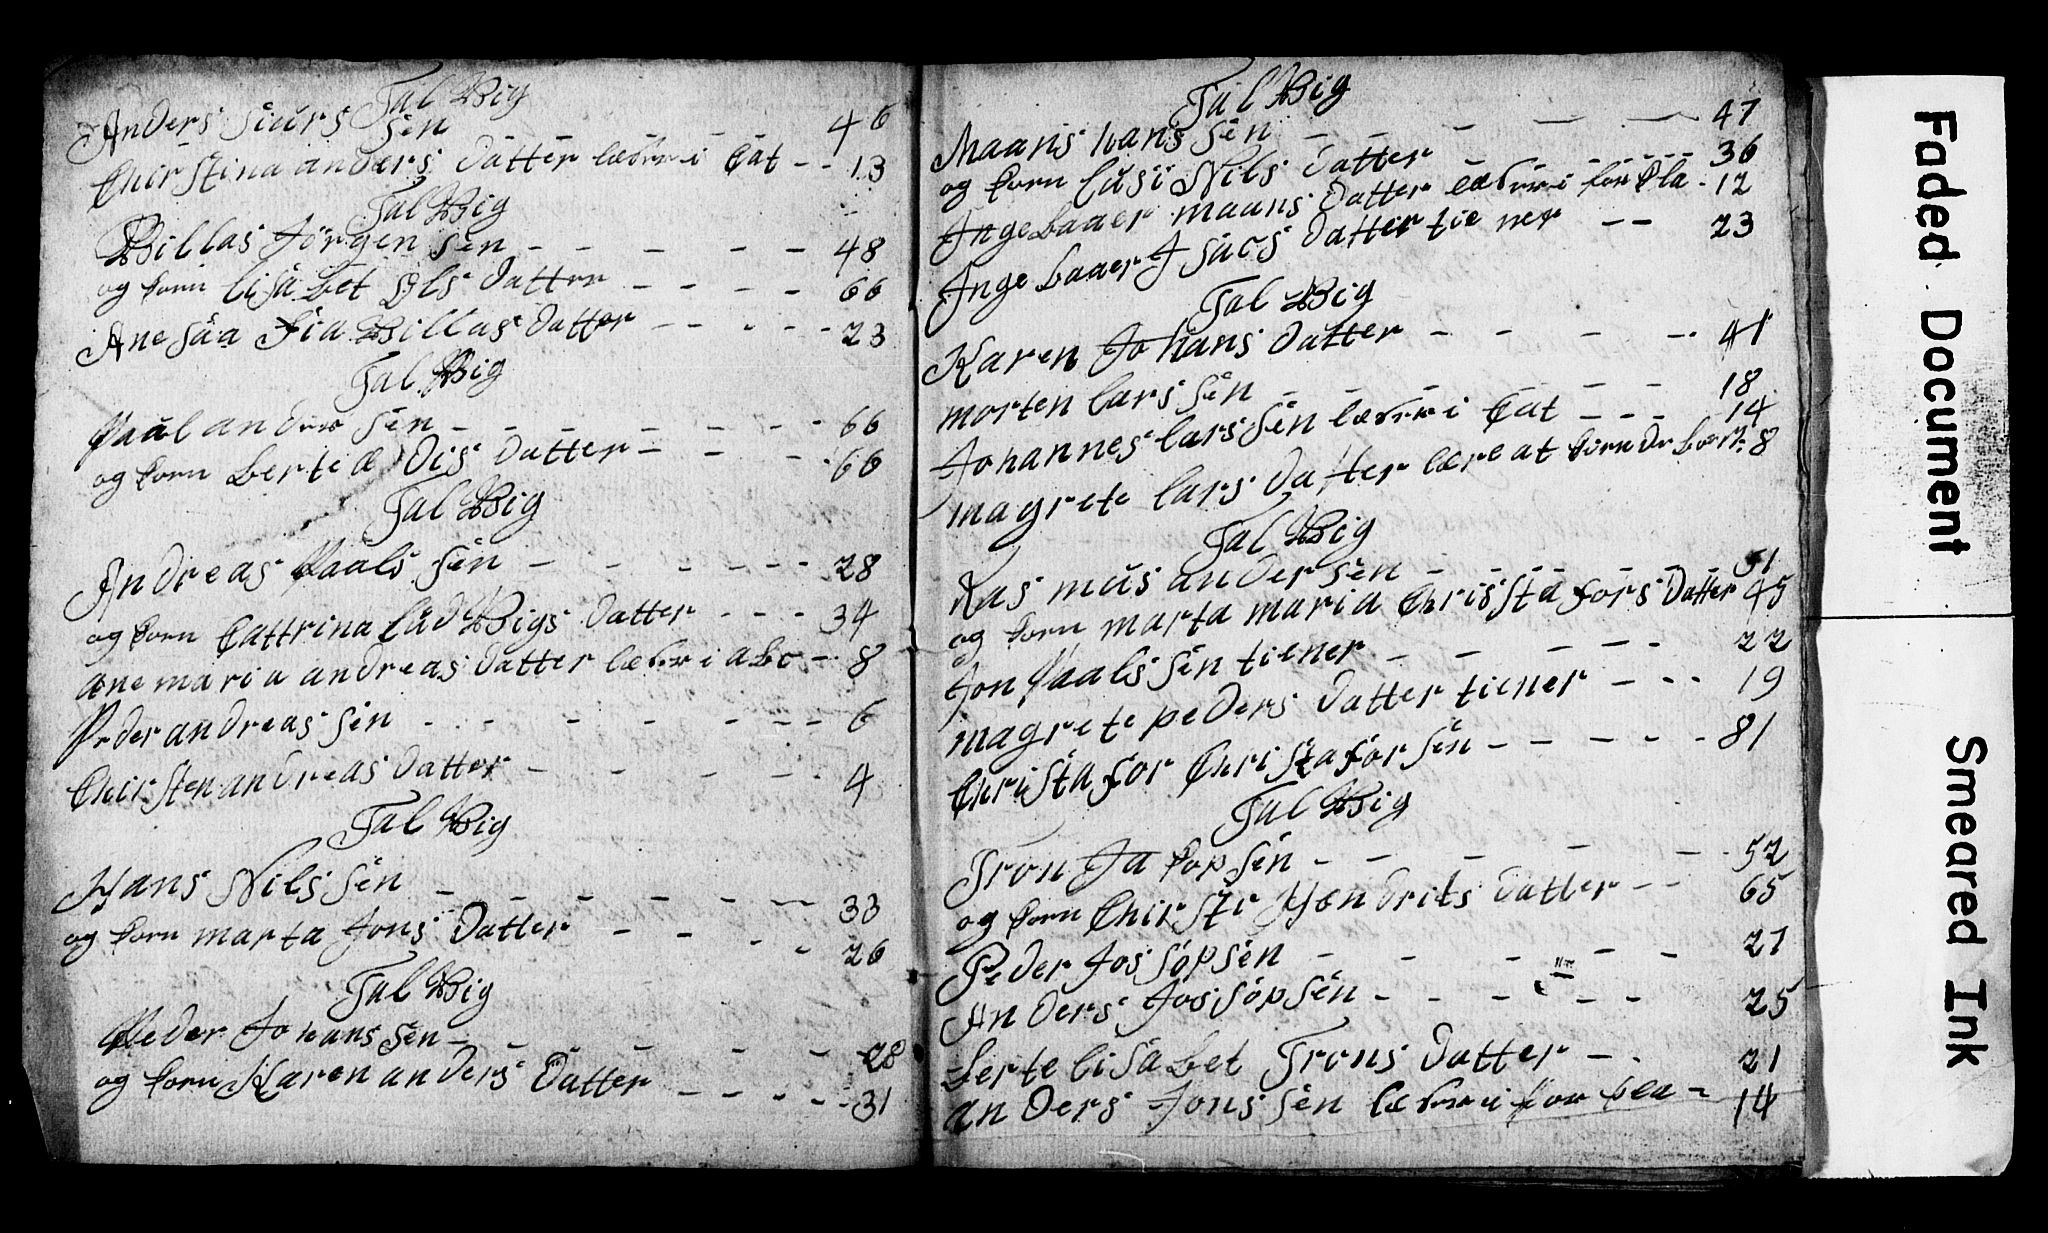 Tal Wig
Anders siurs sen - 46
Chirstina anders datter læser i Cat - - 13
Tal Wig
Willas Jörgen sen - - - - - 48
og konn lisabet Ols datter - - - - 66
Ane saa Fia Willas datter - - - - - 23
Tal Wig
Paal anders sen - - - - - - 66
og konn berte Dis datter - - - 66
Tal Wig
Andreas Paals sen - - - - - - 28
og konn Cattrina ludWigs datter - - - 34
ane maria andreas datter læser i abc - 8
Peder andreas sen - - - - - - 6
Chirsten andreas datter - - - - - 4
Tal Wig
Hans Nils sen - - - - - - 33
og konn marta Jons datter - - - - 26
Tal Wig
Peder Johans sen - - - - - - 28
og konn Karen anders datter - - - - - 31
Tal Wig
Maans hans sen - - - - - 47
og konn lusi Nils datter - - - - - 36
Ingebaaer maans datter læser i forkla - 12
Inge baaer Isacs datter tie ner - - 23
Tal Wig
Karen Johans datter - - - - - 41
morten lars sen - - - - - 18
Johannes lars sen læser i Cat - - - 14
magrete lars datter lære at kiende bog. 8
Tal Wig
Ras mus ander sen - - - - 51
og konn marta maria Christafors datter 45
Jon Paals sen tiener - - - - - 22
magrete peders datter tiener - - - 19
Christafor Christafor sen - - - - - 81
Tal Wig
Tron Jakop sen - - - - - 52
og konn Chirsti Hændriks datter - - 65
Peder Jossöpsen - - - - - 27
Anders Jossöpsen - - - - - 25
berte lisabet Trons datter - - 21
anders Jons sen læser i for kla - 14
Faded Document
Smeared Ink